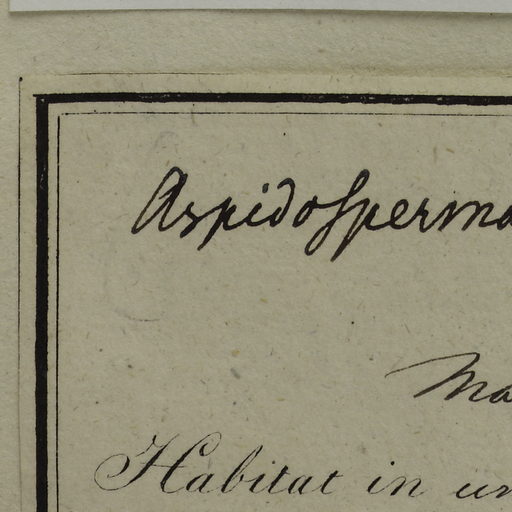 Aspidosperma
Ma
Habitat in